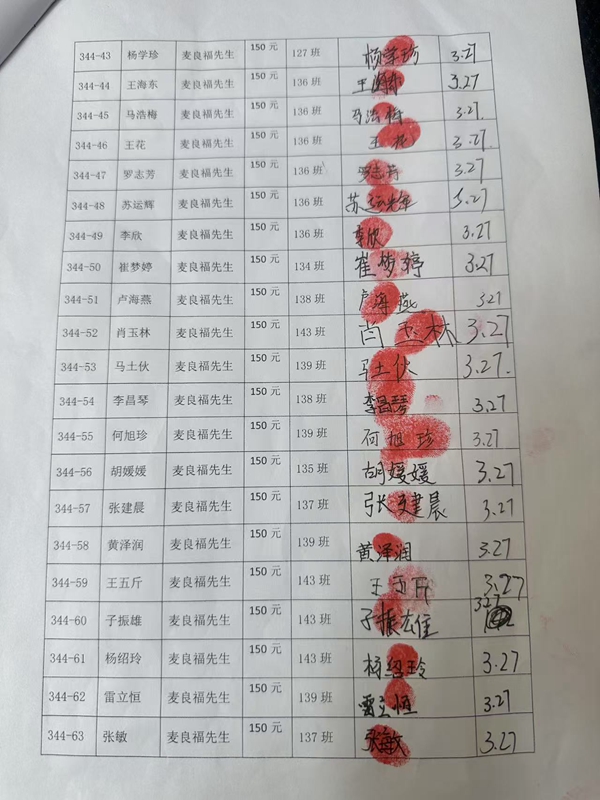 344-43 杨学珍 麦良福先生 150 元 127 班 杨学珍 3.27
344-44 王海东 麦良福先生 150 元 136 班 王海东 3.27
344-45 马浩梅 麦良福先生 150 元 136 班 马浩梅 3.27
344-46 王花 麦良福先生 150 元 136 班 王花 3.27
344-47 罗志芳 麦良福先生 150 元 136 班 罗志芳 3.27
344-48 苏运辉 麦良福先生 150 元 136 班 苏运辉 3.27
344-49 李欣 麦良福先生 150 元 136 班 李欣 3.27
344-50 崔梦婷 麦良福先生 150 元 134 班 崔梦婷 3.27
344-51 卢海燕 麦良福先生 150 元 138 班 卢海燕 3.27
344-52 肖玉林 麦良福先生 150 元 143 班 肖玉林 3.27
344-53 马土伙 麦良福先生 150 元 139 班 马土伙 3.27.
344-54 李昌琴 麦良福先生 150 元 138 班 李昌琴 3.27
344-55 何旭珍 麦良福先生 150 元 139 班 何旭珍 3.27
344-56 胡媛媛 麦良福先生 150 元 135 班 胡媛媛 3.27
344-57 张建晨 麦良福先生 150 元 137 班 张建晨 3.27
344-58 黄泽润 麦良福先生 150 元 139 班 黄泽润 3.27
344-59 王五斤 麦良福先生 150 元 143 班 王五斤 3.27
344-60 子振雄 麦良福先生 150 元 143 班 子振雄 3.27
344-61 杨绍玲 麦良福先生 150 元 143 班 杨绍玲 3.27
344-62 雷立恒 麦良福先生 150 元 139 班 雷立恒 3.27
344-63 张敏 麦良福先生 150 元 137 班 张敏 3.27